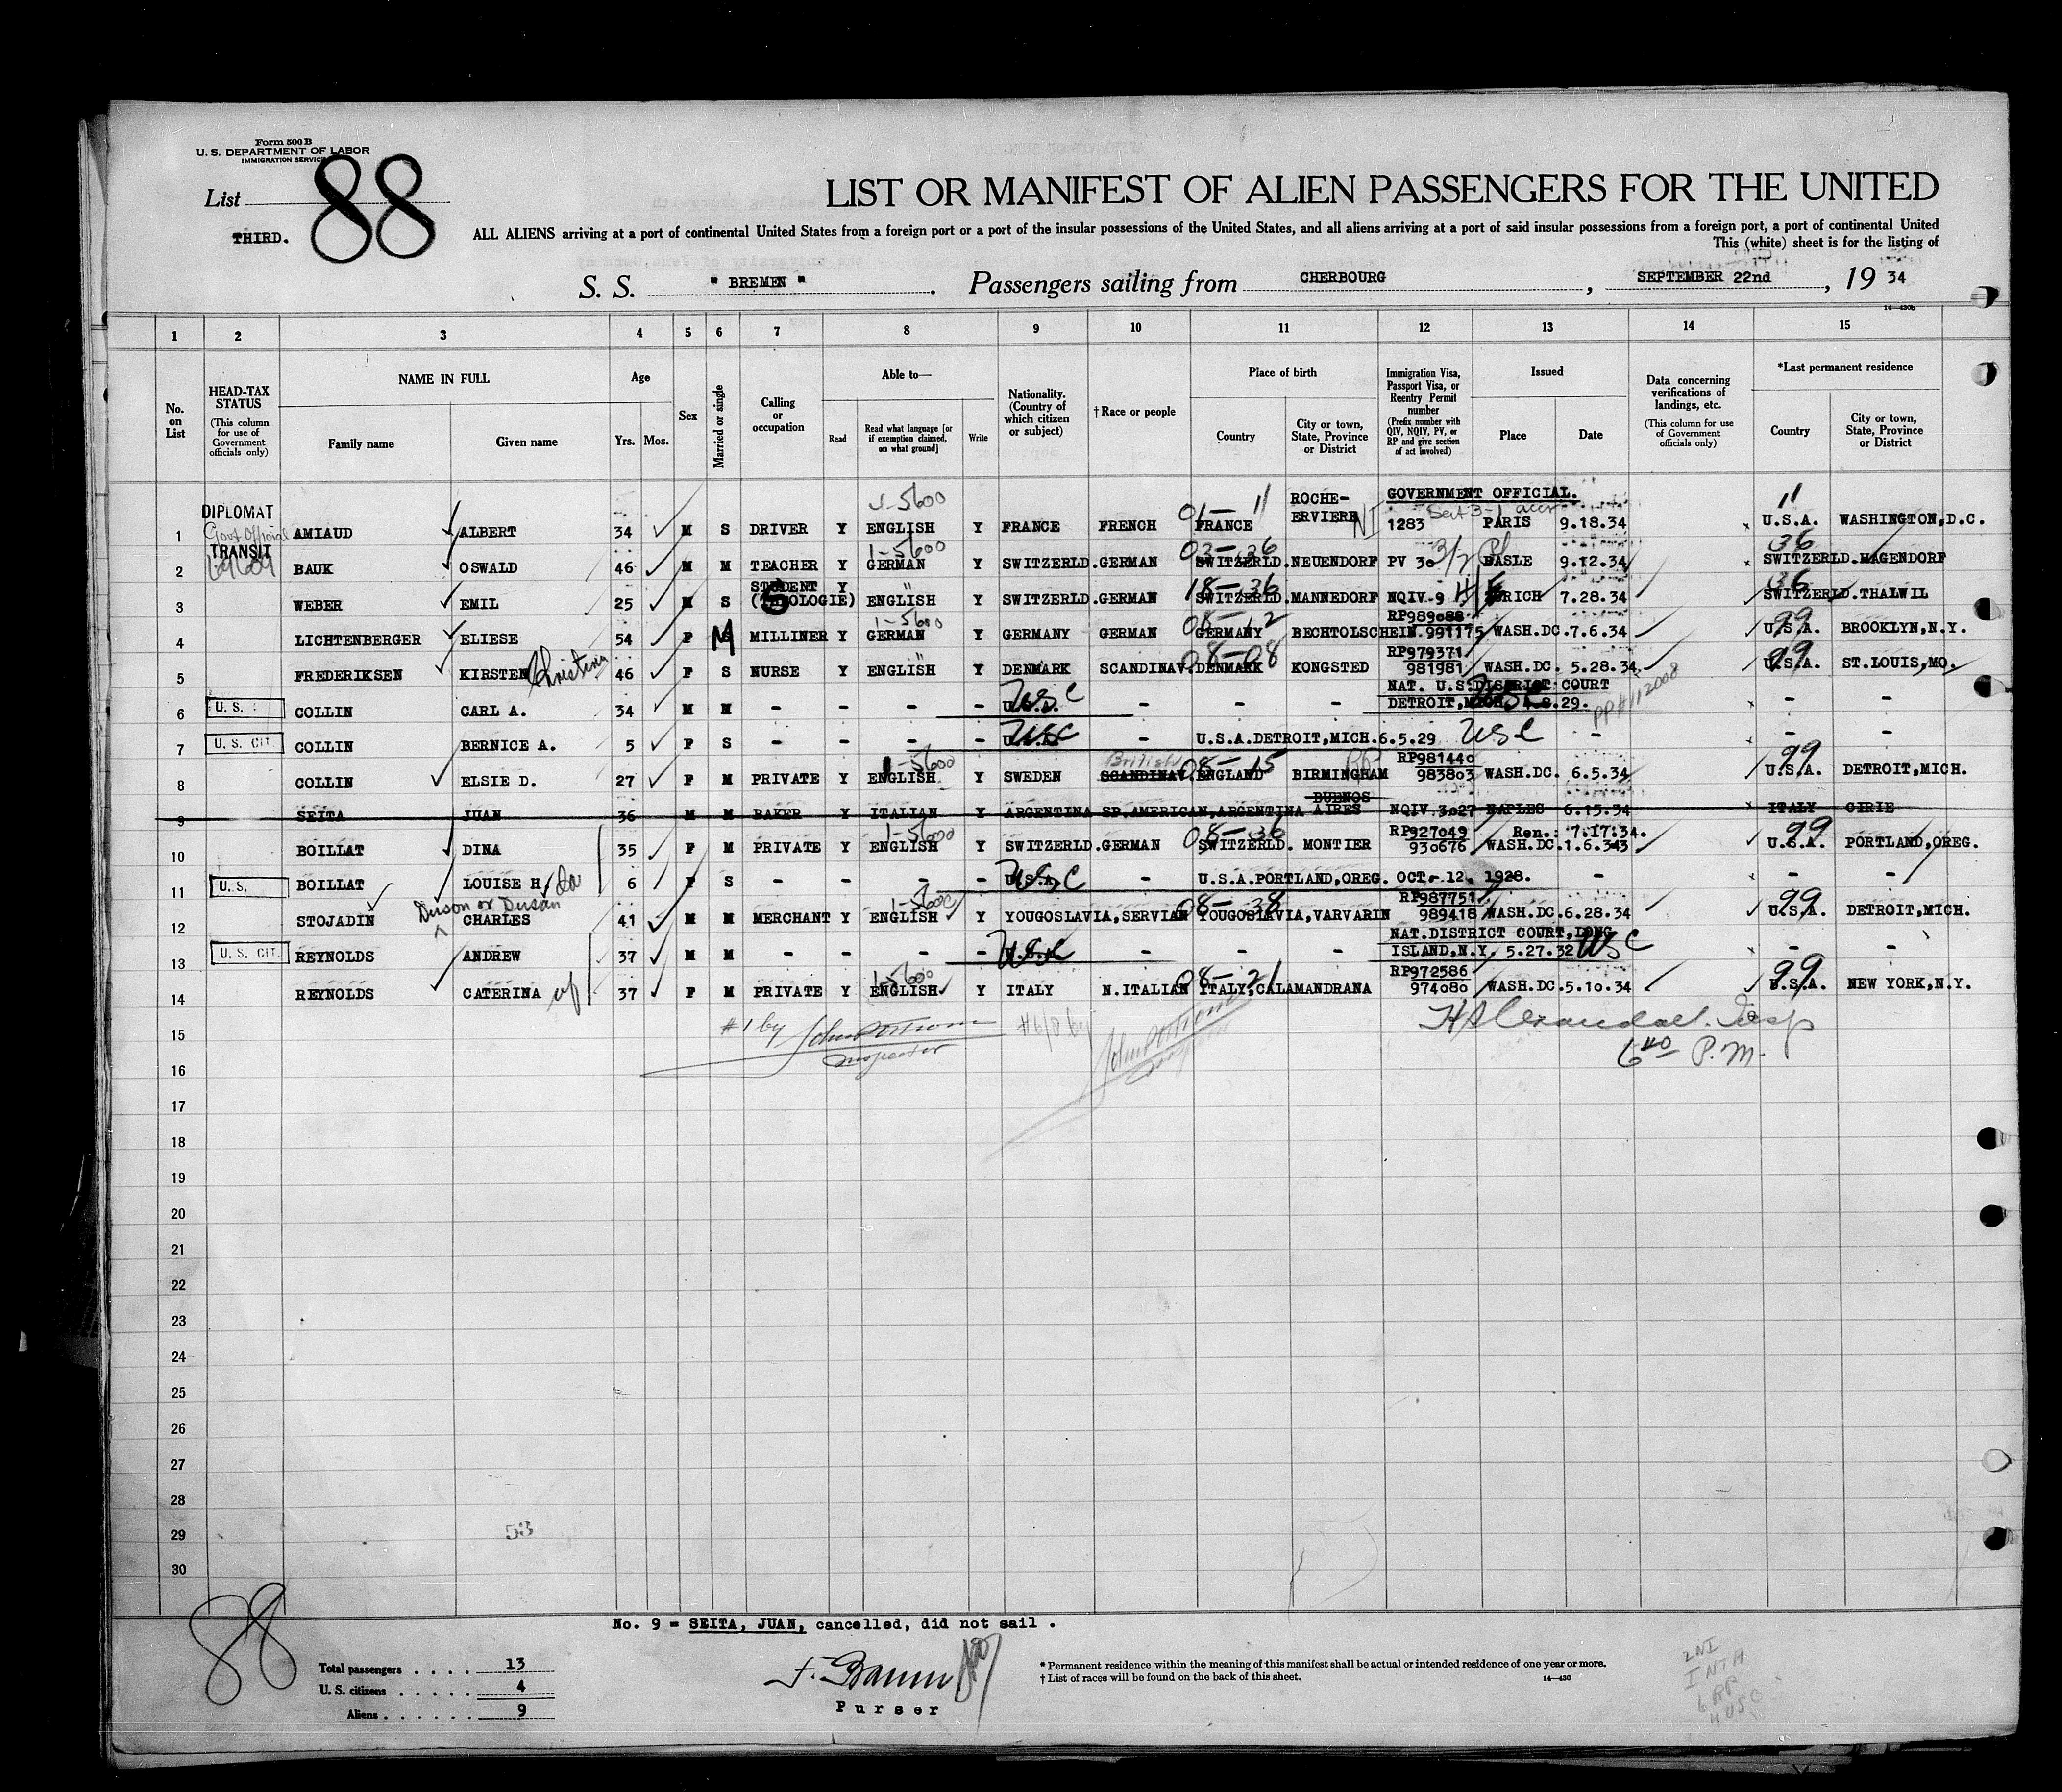 Form 500 B
U. S. DEPARTMENT OF LABOR
IMMIGRATION SERVICE
List 88
THIRD.
LIST OR MANIFEST OF ALIEN PASSENGERS FOR THE UNITED
ALL ALIENS arriving at a port of continental United States from a foreign port or a port of the insular possessions of the United States, and all aliens arriving at a port of said insular possessions from a foreign port, a port of continental United
This (white) sheet is for the listing of
S. S. " BREMEN " . Passengers sailing from CHERBOURG , SEPTEMBER 22nd , 19 34
14—430b
1 2 3 4 5 6 7 8 9 10 11 12 13 14 15
No. on List
HEAD-TAX STATUS (This column for use of Government officials only)
NAME IN FULL Family name Given name
Age Yrs. Mos.
Sex
Married or single
Calling or occupation
Able to— Read Read what language [or if exemption claimed, on what ground] Write
Nationality. (Country of which citizen or subject)
† Race or people
Place of birth Country City or town, State, Province or District
Immigration Visa, Passport Visa, or Reentry Permit number (Prefix number with QIV, NQIV, PV, or RP and give section of act involved)
Issued Place Date
Data concerning verifications of landings, etc. (This column for use of Government officials only)
*Last permanent residence Country City or town, State, Province or District
DIPLOMAT Govt Official 1-5600 01-11 ROCHE- GOVERNMENT OFFICIAL. 11
1 AMIAUD ALBERT 34 M S DRIVER Y ENGLISH Y FRANCE FRENCH FRANCE ERVIERE NI 1283 PARIS 9.18.34 U.S.A. WASHINGTON,D.C.
TRANSIT 1-5600 03-36 3/2 36
2 BAUK OSWALD 46 M M TEACHER Y GERMAN Y SWITZERLD. GERMAN SWITZERLD. NEUENDORF PV 30 BASLE 9.12.34 SWITZERLD. HAGENDORF
STUDENT Y " 18-36 36
3 WEBER EMIL 25 M S (THEOLOGIE) ENGLISH Y SWITZERLD. GERMAN SWITZERLD. MANNEDORF NQIV.9 ZURICH 7.28.34 SWITZERLD. THALWIL
1-5600 08-12 RP989088 99
4 LICHTENBERGER ELIESE 54 F M MILLINER Y GERMAN Y GERMANY GERMAN GERMANY BECHTOLSCHEIM. 991175 WASH.DC. 7.6.34 U.S.A. BROOKLYN,N.Y.
Christina " 08-08 RP979371 99
5 FREDERIKSEN KIRSTEN 46 F S NURSE Y ENGLISH Y DENMARK SCANDINAV. DENMARK KONGSTED 981981 WASH.DC. 5.28.34 U.S.A. ST.LOUIS,MO.
U. S. USC NAT. U.S.DISTRICT COURT PP#112008
6 COLLIN CARL A. 34 M M - - - - U.S.A. - - - DETROIT,MICH. .8.29. - -
U. S. CIT. USC USC
7 COLLIN BERNICE A. 5 F S - - - - U.S.A. - U.S.A.DETROIT,MICH.6.5.29 - - -
1-5600 British 08-15 RP RP981440 99
8 COLLIN ELSIE D. 27 F M PRIVATE Y ENGLISH Y SWEDEN SCANDINAV. ENGLAND BIRMINGHAM 983803 WASH.DC. 6.5.34 U.S.A. DETROIT,MICH.
BUENOS
9 SEITA JUAN 36 M M BAKER Y ITALIAN Y ARGENTINA SP.AMERICAN, ARGENTINA AIRES NQIV.3027 NAPLES 6.15.34 ITALY CIRIE
1-5600 08-36 RP927049 Ren.: 7.17.34. 99
10 BOILLAT DINA 35 F M PRIVATE Y ENGLISH Y SWITZERLD. GERMAN SWITZERLD. MONTIER 930676 WASH.DC. 1.6.33 U.S.A. PORTLAND,OREG.
U. S. USC
11 BOILLAT LOUISE H. da 6 F S - - - - U.S.A. - U.S.A.PORTLAND,OREG. OCT.-12, 1928. - - -
Duson or Dusan 1-5600 08-38 RP987751 99
12 STOJADIN CHARLES 41 M M MERCHANT Y ENGLISH Y YOUGOSLAVIA, SERVIAN YOUGOSLAVIA, VARVARIN 989418 WASH.DC. 6.28.34 U.S.A. DETROIT,MICH.
U. S. CIT. USC NAT.DISTRICT COURT,LONG
13 REYNOLDS ANDREW 37 M M - - - - U.S.A. - - - ISLAND,N.Y. 5.27.32 USC - -
1-5600 08-21 RP972586 99
14 REYNOLDS CATERINA wf 37 F M PRIVATE Y ENGLISH Y ITALY N.ITALIAN ITALY, CALAMANDRANA 974080 WASH.DC. 5.10.34 U.S.A. NEW YORK,N.Y.
15 #1 by Inspector #6/8 by
6 40 P.M.
16
17
18
19
20
21
22
23
24
25
26
27
28
29 53
30
88
No. 9 = SEITA, JUAN, cancelled, did not sail .
Total passengers . . . . 13
U. S. citizens . . . . . 4
Aliens . . . . . . 9
Purser
* Permanent residence within the meaning of this manifest shall be actual or intended residence of one year or more.
† List of races will be found on the back of this sheet.
14—430
2 NI
1 NTA
6 RP
4 USC